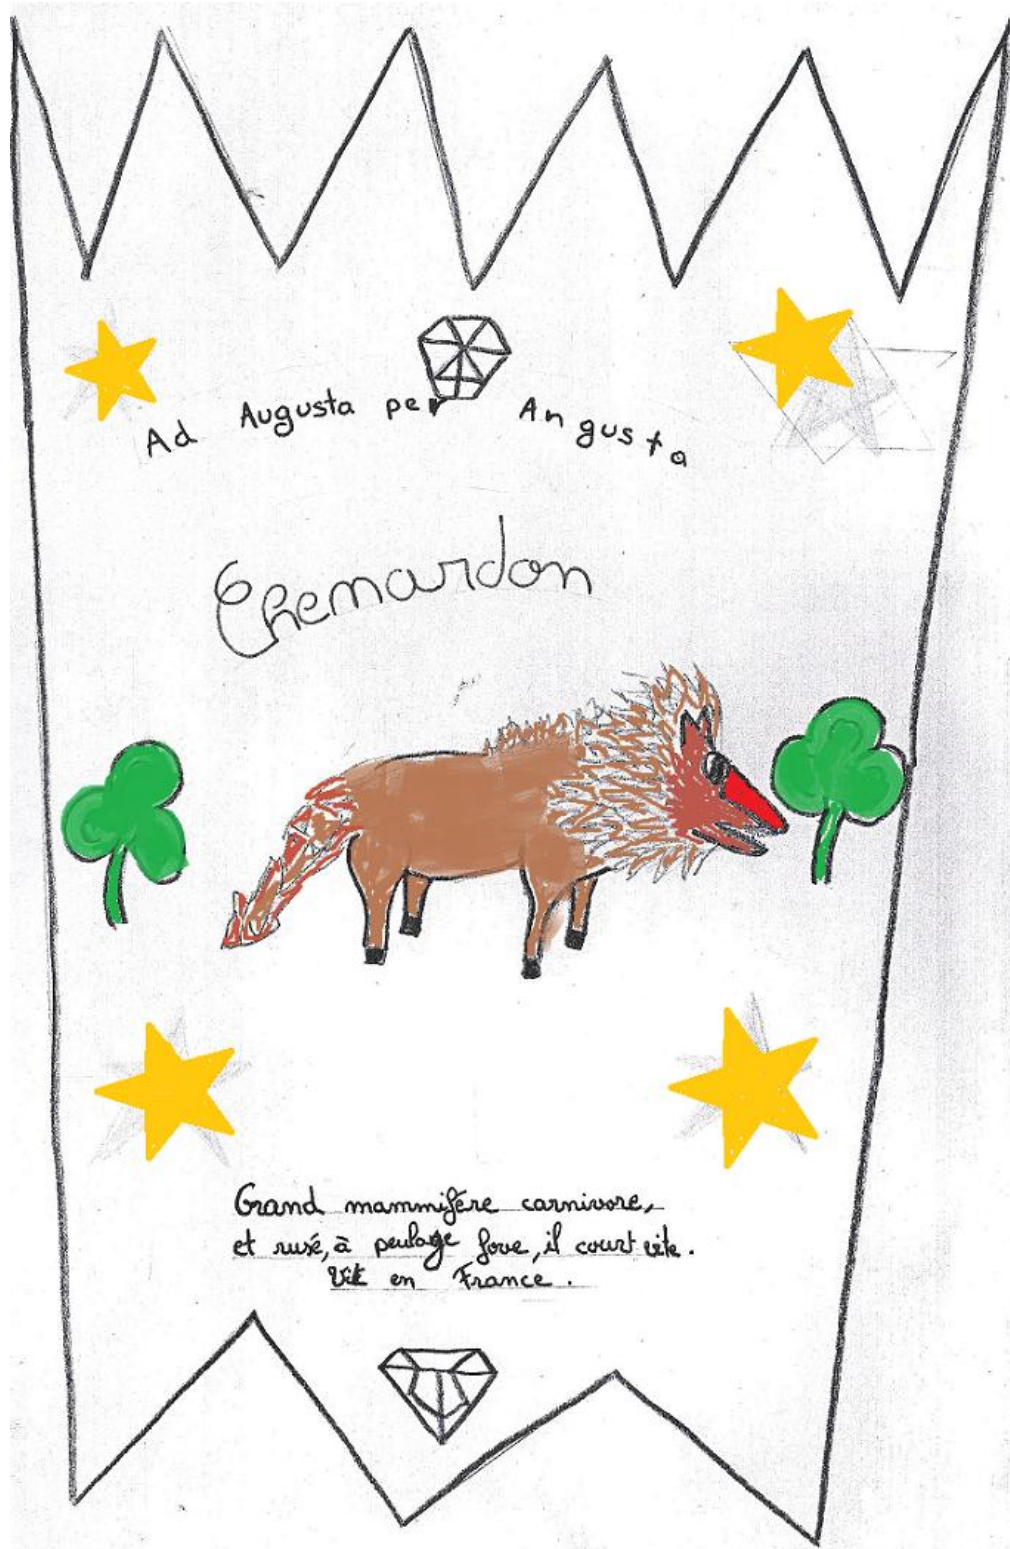 Ad Augusta per Angusta
Chemardon
Grand mammifère carnivore,
et rusé, à peulage fove, il court vite.
Vit en France.